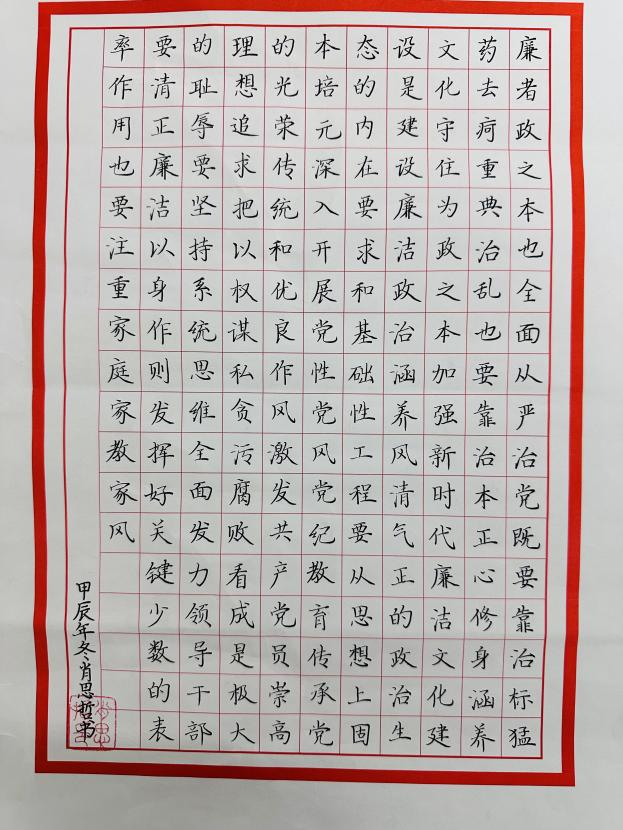 廉者政之本也全面从严治党既要靠治标猛
药去疴重典治乱也要靠治本正心修身涵养
文化守住为政之本加强新时代廉洁文化建
设是建设廉洁政治涵养风清气正的政治生
态的内在要求和基础性工程要从思想上固
本培元深入开展党性党风党纪教育传承党
的光荣传统和优良作风激发共产党员崇高
理想追求把以权谋私贪污腐败看成是极大
的耻辱要坚持系统思维全面发力领导干部
要清正廉洁以身作则发挥好关键少数的表
率作用也要注重家庭家教家风
甲辰年冬肖思哲书